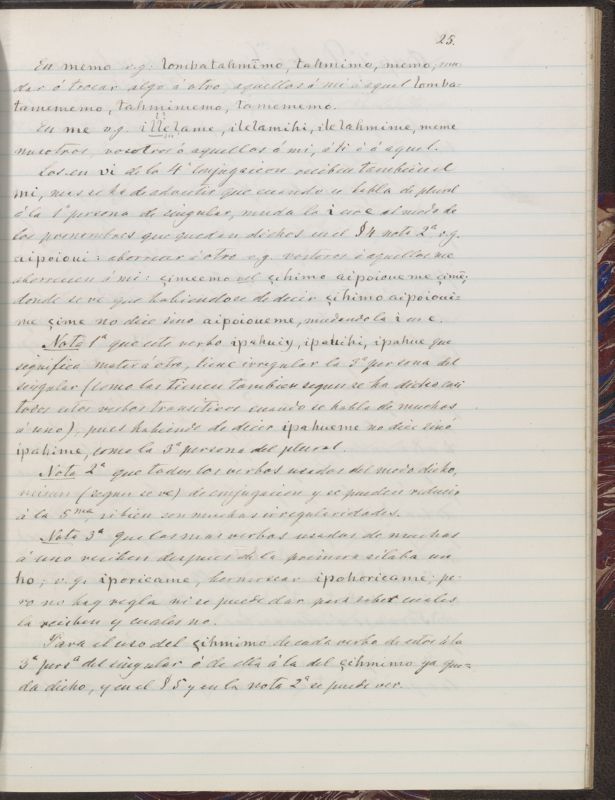 25.
En memo v.g. lombatahmīmo, tahmimo, memo, mu-
dar ó trocar algo á otro, aquellos á mi ó aquel lomba-
tamememo, tahmimemo, tamememo.
En me v.g. illelame, ilelamihi, ilelahmime, meme
nosotros, vosotros ó aquellos á mi, á ti ó á aquel.
Los en vi de la 4ª conjugacion reciben tambien el
mi, mas se ha de advertir que cuando se habla de plural
á la 1ª persona de singular, muda la i en e al modo de
los pronombres que quedan dichos en el § 4 nota 2ª v.g.
aipoioui: aborrecer á otro v.g. vosotros ó aquellos me
aborrecen á mi: çimeemo vel çihimo aipoioueme çime,
donde se ve que habiendose de decir çihimo aipoioui=
me çime no dice sino aipoioueme, mudando la i en e.
Nota 1ª que este verbo ipahuiy, ipauihi, ipahue que
significa matar á otro, tiene irregular la 3ª persona del
singular (como las tienen tambien segun se ha dicho casi
todos estos verbos transitivos cuando se habla de muchos
á uno), pues habiendo de decir ipahueme no dice sinó
ipahime, como la 3ª persona del plural.
Nota 2ª que todos los verbos usados del modo dicho,
(segun se ve) de conjugacion y se pueden reducir
á la 5ma, si bien con muchas irregularidades.
Nota 3ª que los mas verbos usados de muchos
á uno reciben despues de la primera silaba un
ho, v.g. iporicame, ipohoricame; pe-
ro no hay regla ni se puede dar para saber cuales
la reciben y cuales no.
Para el uso del çihmimo de cada verbo de estos á la
3ª persª del singular ó de ella á la del çihmimo ya que=
da dicho, y en el § 5 y en la nota 2ª se puede ver.